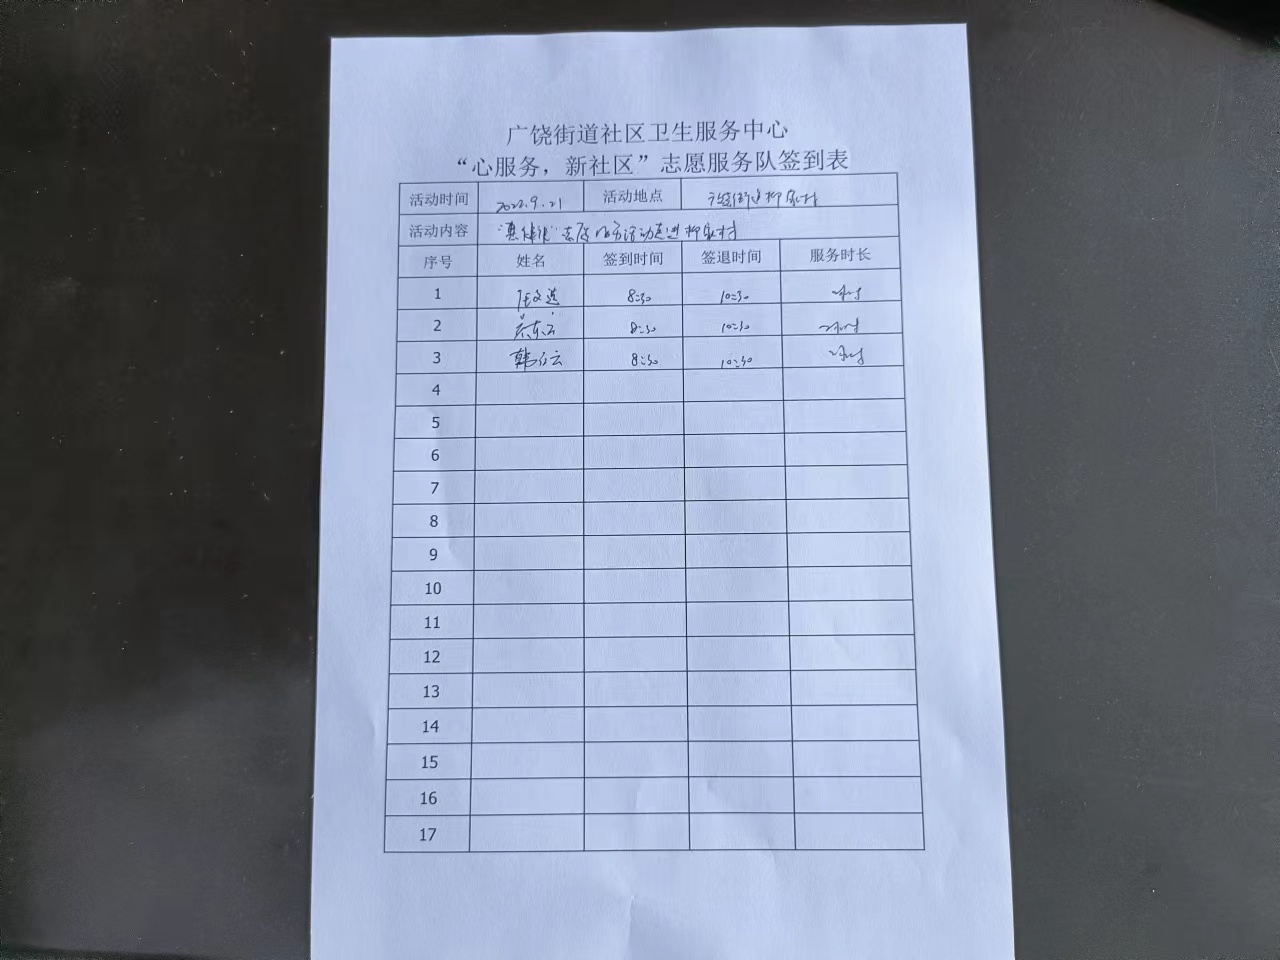 广饶街道社区卫生服务中心
“心服务，新社区”志愿服务队签到表
活动时间 2022.9.21 活动地点 广饶街道柳家村
活动内容 志愿服务活动走进柳家村
序号 姓名 签到时间 签退时间 服务时长
1 8:30 10:30 2小时
2 8:30 10:30 2小时
3 韩 云 8:30 10:30 2小时
4
5
6
7
8
9
10
11
12
13
14
15
16
17